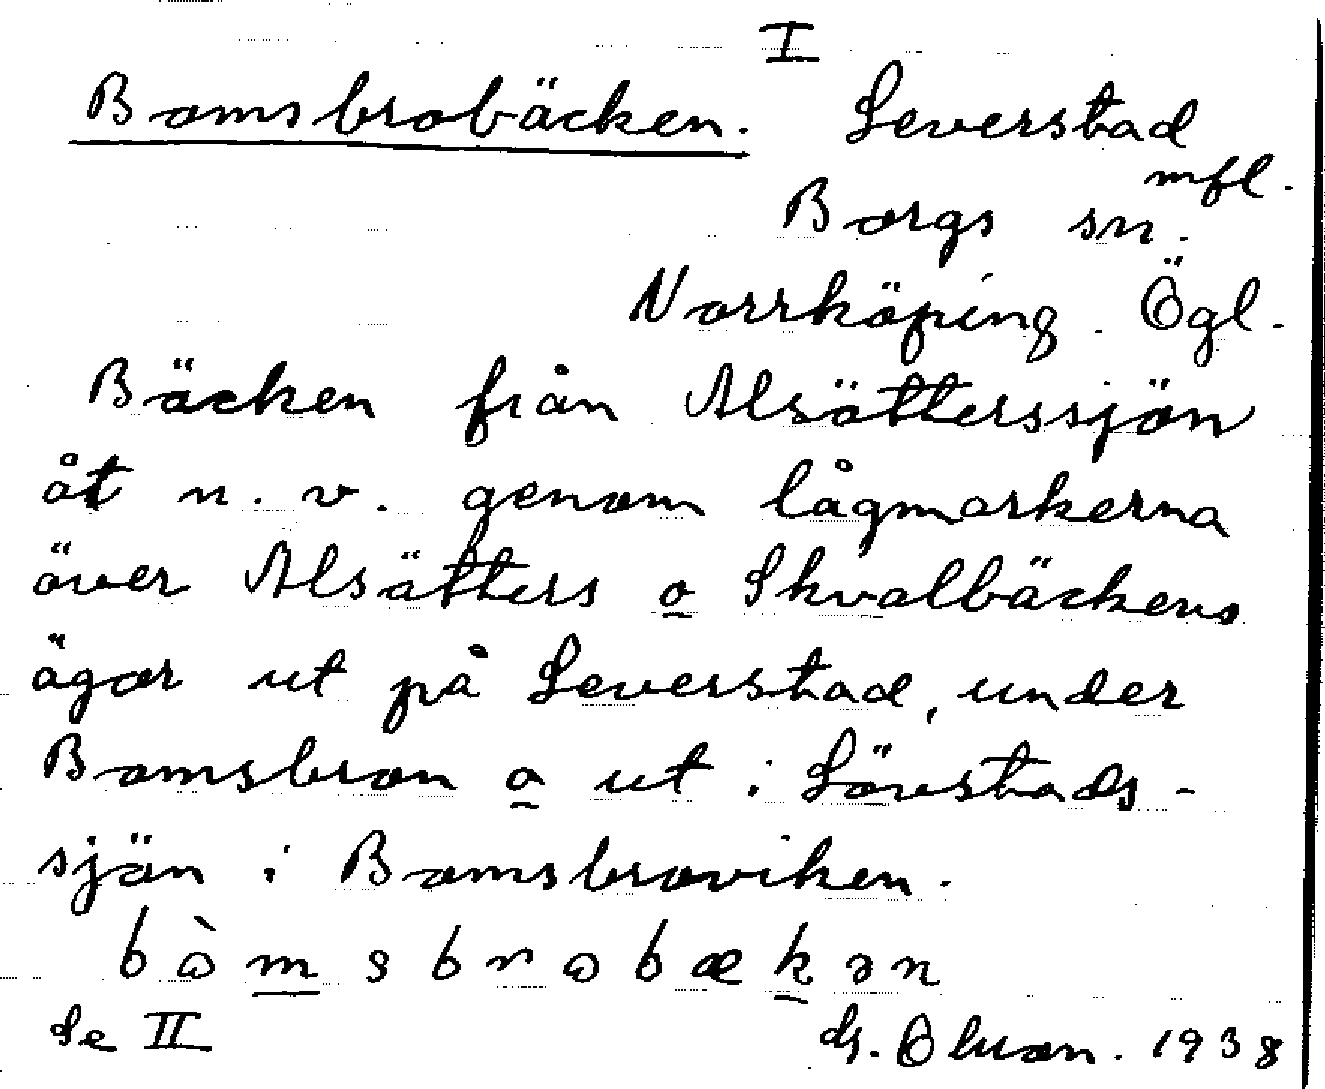 I
Bomsbrobäcken. Leverstad
mfl.
Borgs sn.
Norrköping. Ögl.
Bäcken från Alsätterssjön
åt n. v. genom lågmarkerna
över Alsätters o Skvalbäckens
ägor ut på Leverstad, under
Bomsbron o ut i Lövstads-
sjön i Bomsbroviken.
Se II
1938